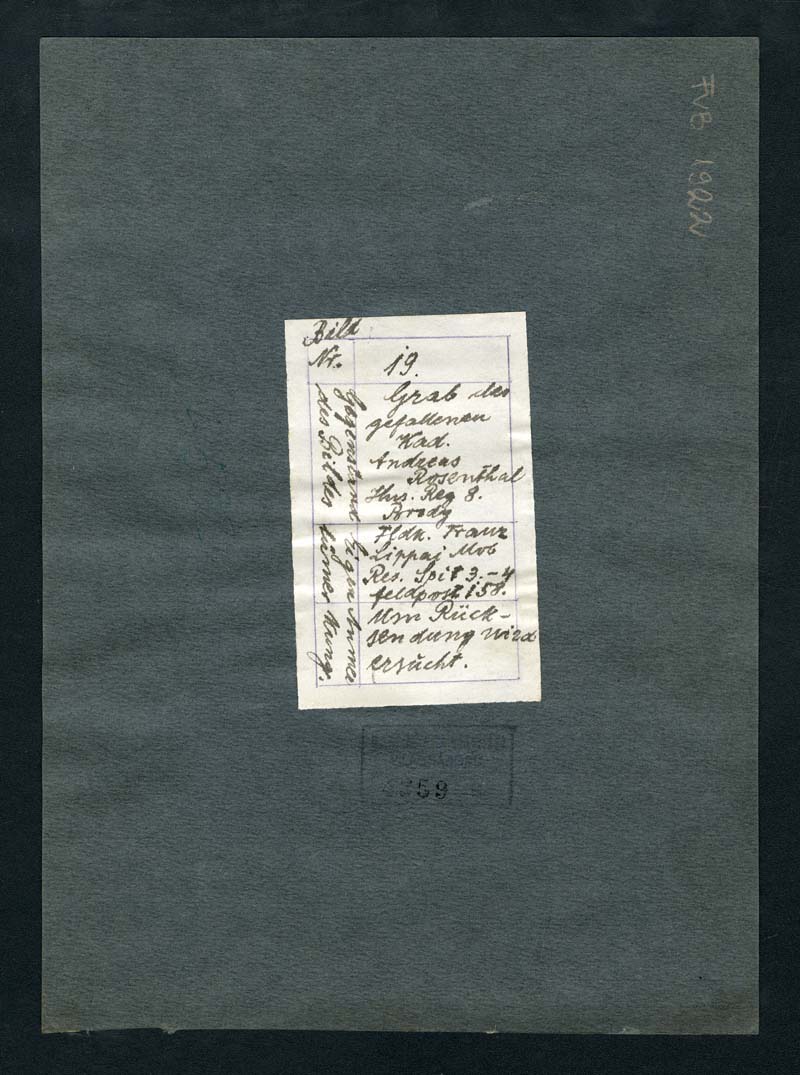 FVB 1922
Bild
Nr.
19.
Gegenstand
des Bildes
Grab des
gefallenen
Kad.
Andreas
Rosenthal
Hus. Reg 8.
Brody
Eigen
tümer
Fldk. Franz
Lippaj Mob
Res. Spit 3.-4
feldpost 158.
Anmer
kung.
Um Rück-
sendung wird
ersucht.
59